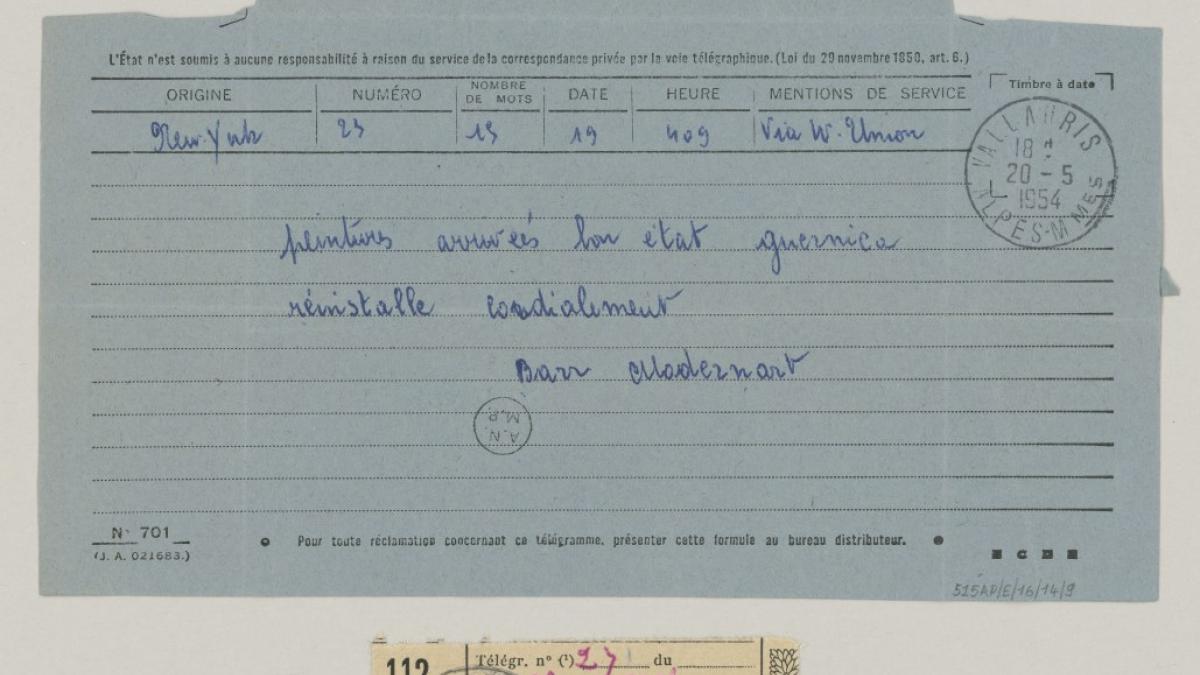 L'État n'est soumis à aucune responsabilité à raison du service de la correspondance privée par la voie télégraphique. (Loi du 29 novembre 1850, art. 6.)
ORIGINE NUMÉRO NOMBRE DE MOTS DATE HEURE MENTIONS DE SERVICE Timbre à date
New-York 23 13 19 409 Via W. Union
VALLAURIS
18 H
20 - 5
1954
ALPES-M MES
peintures arrivées bon état guernica
réinstalle cordialement
Barr Modernart
A.N.
M.P.
N° 701
(J. A. 021683.)
Pour toute réclamation concernant ce télégramme, présenter cette formule au bureau distributeur.
515AP/E/16/14/9
112 Télégr. n° (1) 27 du